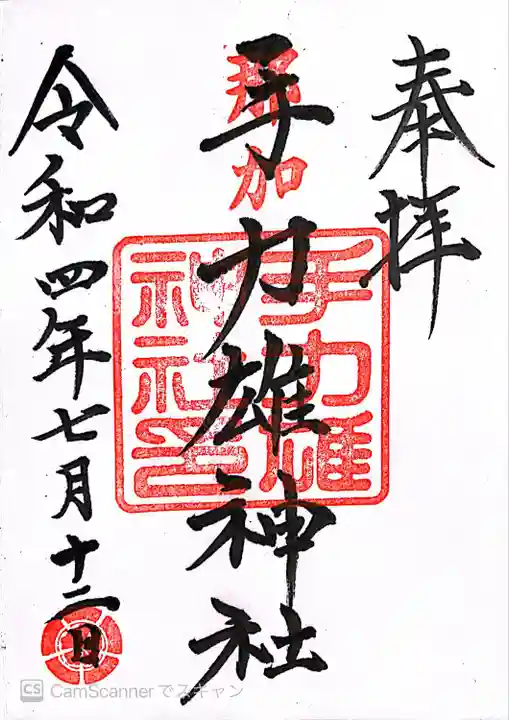 奉拝
那加
手力雄神社
手力雄
神社
令和四年七月十二日
CS CamScannerでスキャン